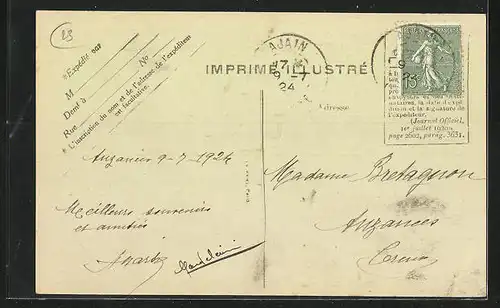 23
*Expédié par
M No
Demt à
Rue
* L'institution du nom et de l'adresse de l'expéditeur
est facultative.
AJAIN
17
9-7
24
IMPRIMÉ ILLUSTRÉ
Adresse
15
naires, la date d'expé-
dition et la signature de
l'expéditeur.
(Journal Officiel,
1er juillet 1920,
page 2602, parag. 3651.
9-7-1924
Meilleurs souvenirs
et amitiés
Madame Bretagnon
Auzances
Creuse